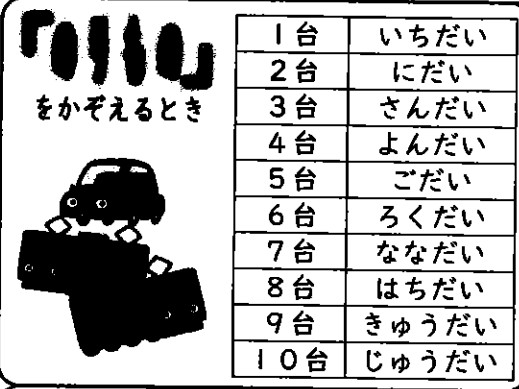 をかぞえるとき
1台 いちだい
2台 にだい
3台 さんだい
4台 よんだい
5台 ごだい
6台 ろくだい
7台 ななだい
8台 はちだい
9台 きゅうだい
10台 じゅうだい